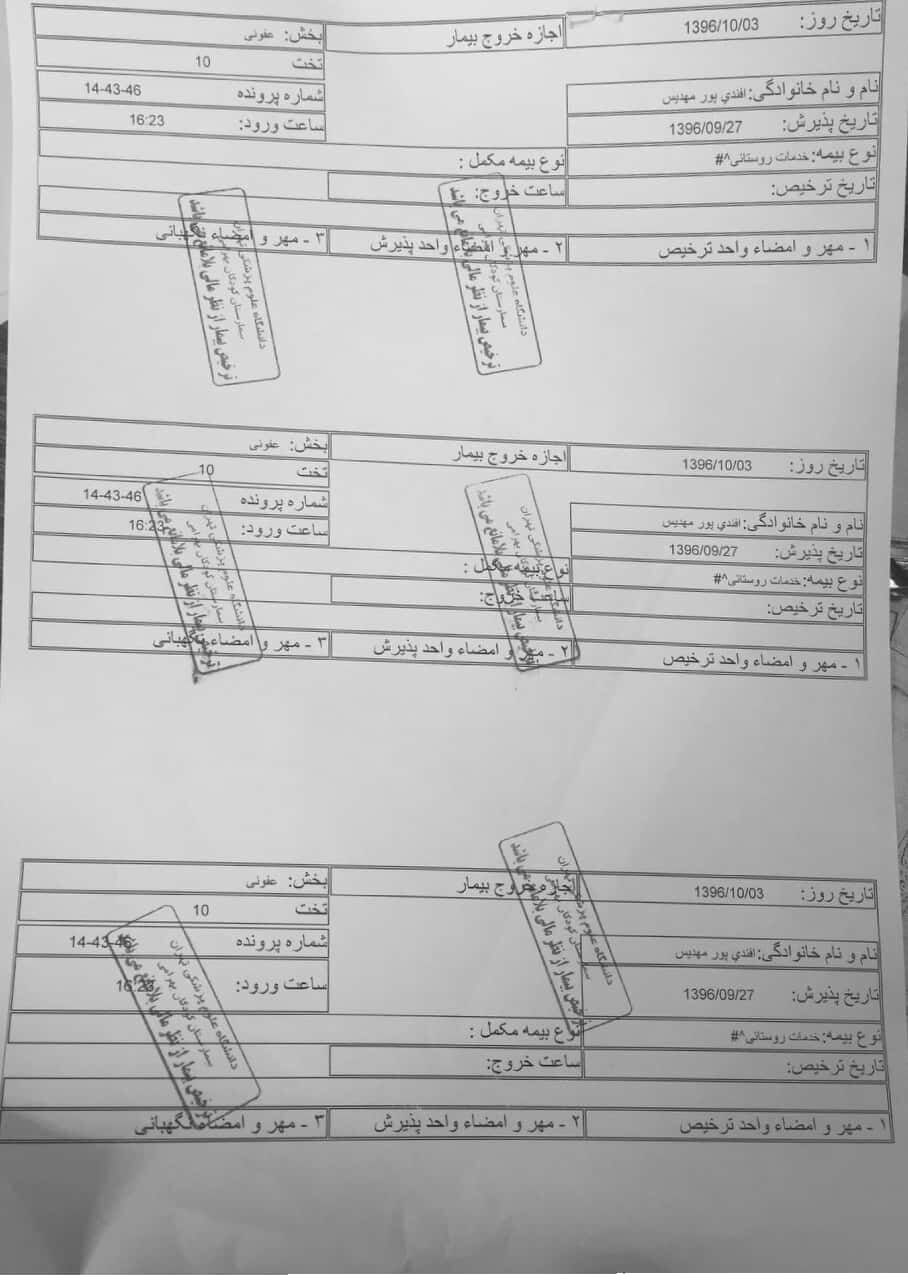 تاریخ روز: 1396/10/03 اجازه خروج بیمار بخش: عفونی
تخت 10
نام و نام خانوادگی: افندي پور مهدیس شماره پرونده 14-43-46
تاریخ پذیرش: 1396/09/27 ساعت ورود: 16:23
نوع بیمه: خدمات روستائی^# نوع بیمه مکمل :
تاریخ ترخیص: ساعت خروج:
۱ - مهر و امضاء واحد ترخیص ۲ - مهر و امضاء واحد پذیرش ۳ - مهر و امضاء نگهبانی
دانشگاه علوم پزشکی تهران
بیمارستان کودکان بهرامی
ترخیص بیمار از نظر مالی بلامانع می باشد
دانشگاه علوم پزشکی تهران
بیمارستان کودکان بهرامی
ترخیص بیمار از نظر مالی بلامانع می باشد
تاریخ روز: 1396/10/03 اجازه خروج بیمار بخش: عفونی
تخت 10
نام و نام خانوادگی: افندي پور مهدیس شماره پرونده 14-43-46
تاریخ پذیرش: 1396/09/27 ساعت ورود: 16:23
نوع بیمه: خدمات روستائی^# نوع بیمه مکمل :
تاریخ ترخیص: ساعت خروج:
۱ - مهر و امضاء واحد ترخیص ۲ - مهر و امضاء واحد پذیرش ۳ - مهر و امضاء نگهبانی
دانشگاه علوم پزشکی تهران
بیمارستان کودکان بهرامی
ترخیص بیمار از نظر مالی بلامانع می باشد
دانشگاه علوم پزشکی تهران
بیمارستان کودکان بهرامی
ترخیص بیمار از نظر مالی بلامانع می باشد
تاریخ روز: 1396/10/03 اجازه خروج بیمار بخش: عفونی
تخت 10
نام و نام خانوادگی: افندي پور مهدیس شماره پرونده 14-43-46
تاریخ پذیرش: 1396/09/27 ساعت ورود: 16:23
نوع بیمه: خدمات روستائی^# نوع بیمه مکمل :
تاریخ ترخیص: ساعت خروج:
۱ - مهر و امضاء واحد ترخیص ۲ - مهر و امضاء واحد پذیرش ۳ - مهر و امضاء نگهبانی
دانشگاه علوم پزشکی تهران
بیمارستان کودکان بهرامی
ترخیص بیمار از نظر مالی بلامانع می باشد
دانشگاه علوم پزشکی تهران
بیمارستان کودکان بهرامی
ترخیص بیمار از نظر مالی بلامانع می باشد